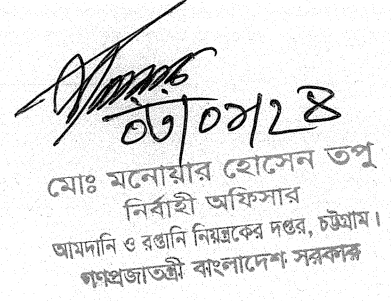 ০৩/০৯/২৪
মোঃ মনোয়ার হোসেন তপু
নির্বাহী অফিসার
আমদানি ও রপ্তানি নিয়ন্ত্রকের দপ্তর, চট্টগ্রাম।
গণপ্রজাতন্ত্রী বাংলাদেশ সরকার